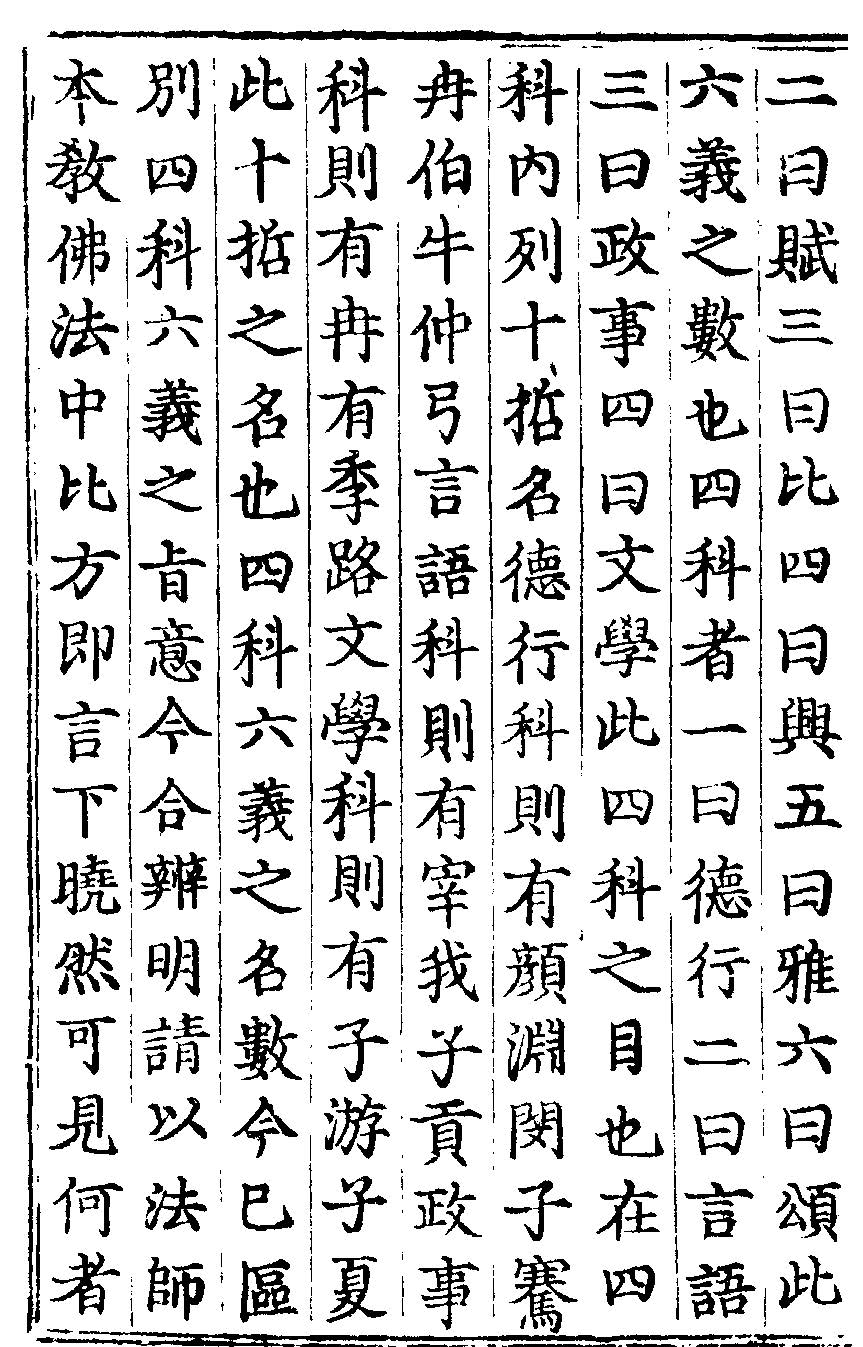 二曰賦三曰比四曰興五曰雅六曰頌此
六義之數也四科者一曰德行二曰言語
三曰政事四曰文學此四科之目也在四
科內列十哲名德行科則有顏淵閔子騫
冉伯牛仲弓言語科則有宰我子貢政事
科則有冉有季路文學科則有子游子夏
此十哲之名也四科六義之名數今已區
別四科六義之旨意今合辨明請以法師
本教佛法中比方即言下曉然可見何者